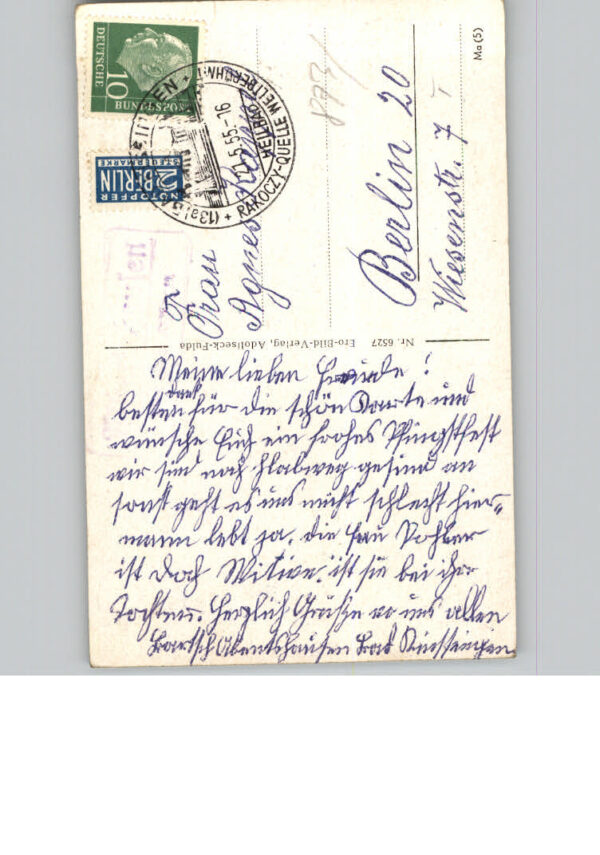 DEUTSCHE
10
BUNDESPOST
NOTOPFER
2 BERLIN
STEUERMARKE
(13a) BAD KISSINGEN
5.55.-16
HEILBAD
RAKOCZY-QUELLE WELTBERÜHMT
Ma (5)
Frau
Agnes
Berlin 20
Wiesenstr. 7
Nr. 6527 Ero-Bild-Verlag, Adolfseck-Fulda
Meine lieben Freunde!
besten Dank für die schön Karte und
wünsche Euch ein frohes Pfingstfest
wir sind noch gesund an
sonst geht es uns nicht schlecht hier
mann lebt ja. die Frau
ist doch Witwe. ist sie bei ihr
Tochter. Herzlich Grüße von uns allen
Bad Kissingen